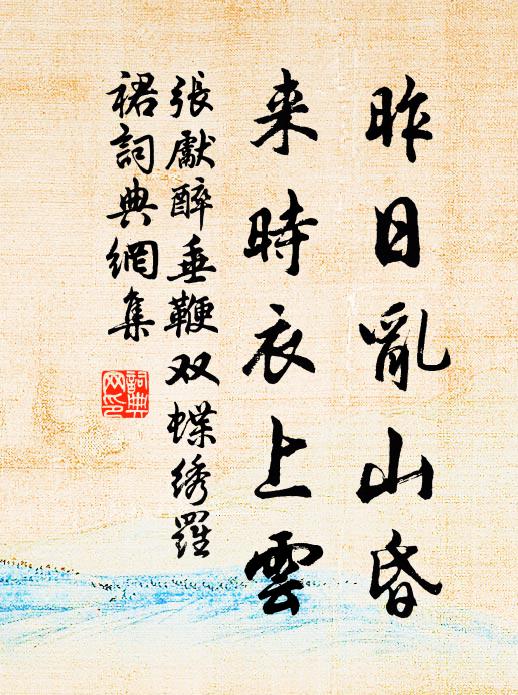 昨日亂山昏
来時衣上雲
張獻醉垂鞭双蝶綉羅
裙詞典網集
詞典
网印